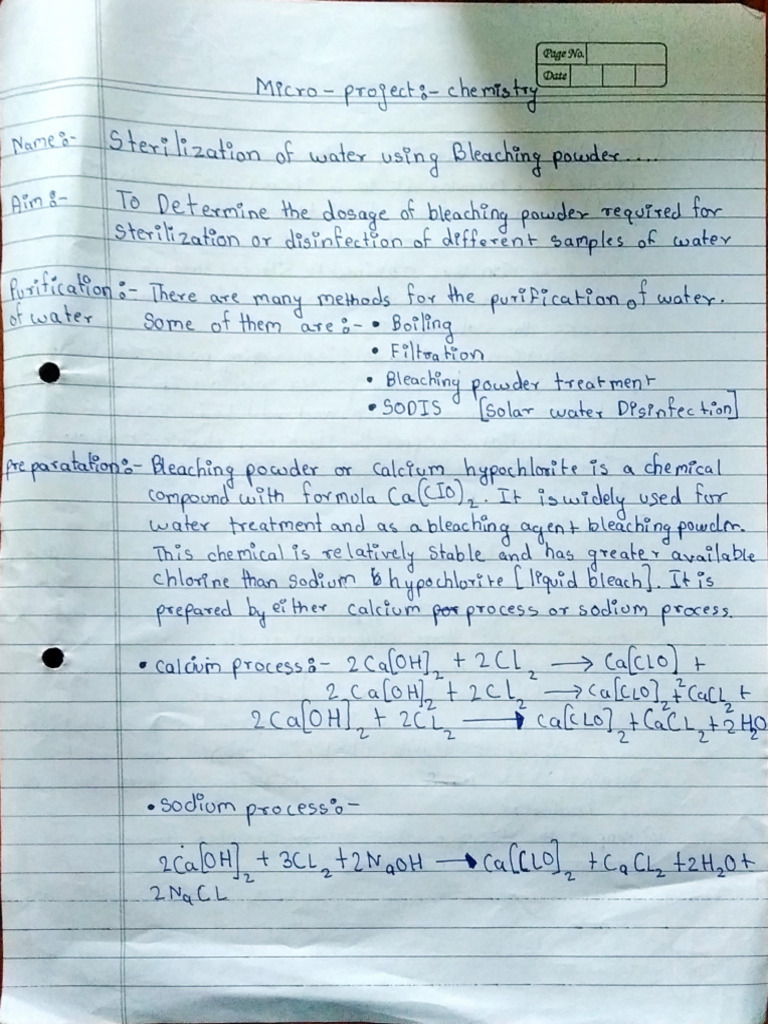 Page No.
Date
Micro - project:- chemistry
Name:- Sterilization of water using Bleaching powder....
Aim:- To Determine the dosage of bleaching powder required for
sterilization or disinfection of different samples of water
Purification:- There are many methods for the purification of water.
of water Some of them are:- • Boiling
• Filtration
• Bleaching powder treatment
• SODIS [Solar water Disinfection]
preparatation:- Bleaching powder or calcium hypochlorite is a chemical
compound with formula Ca(ClO)₂. It is widely used for
water treatment and as a bleaching agent bleaching powder.
This chemical is relatively stable and has greater available
chlorine than sodium hypochlorite [liquid bleach]. It is
prepared by either calcium process or sodium process.
• calcium process:- 2Ca[OH]₂ + 2CL₂ → Ca[CLO]₂ +
2Ca[OH]₂ + 2CL₂ → Ca[CLO]₂ + CaCL₂ +
2Ca[OH]₂ + 2CL₂ → Ca[CLO]₂ + CaCL₂ + 2H₂O
• sodium process:-
2Ca[OH]₂ + 3CL₂ + 2NaOH → Ca[CLO]₂ + CaCL₂ + 2H₂O +
2NaCL